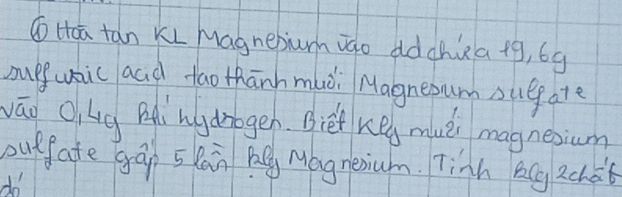 ⑥ Hoà tan KL Magnesium vào dd chứa 19,6g
sulfuric acid tạo thành muối Magnesium sulfate
vào 0,4g khí hydrogen. Biết klg muối magnesium
sulfate gấp 5 lần klg Magnesium. Tính klg 2 chất
đó